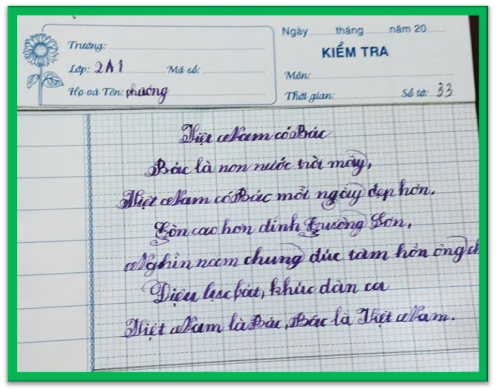 Ngày tháng năm 20
KIỂM TRA
Trường:
Lớp: 2A1 Mã số:
Môn:
Họ và Tên: phương
Thời gian: Số tờ: 33
Việt Nam có Bác
Bác là non nước trời mây,
Việt Nam có Bác mỗi ngày đẹp hơn.
Còn cao hơn đỉnh Trường Sơn,
Nghìn năm chung đúc tâm hồn ông ch
Điệu lục bát, khúc dân ca
Việt Nam là Bác, Bác là Việt Nam.